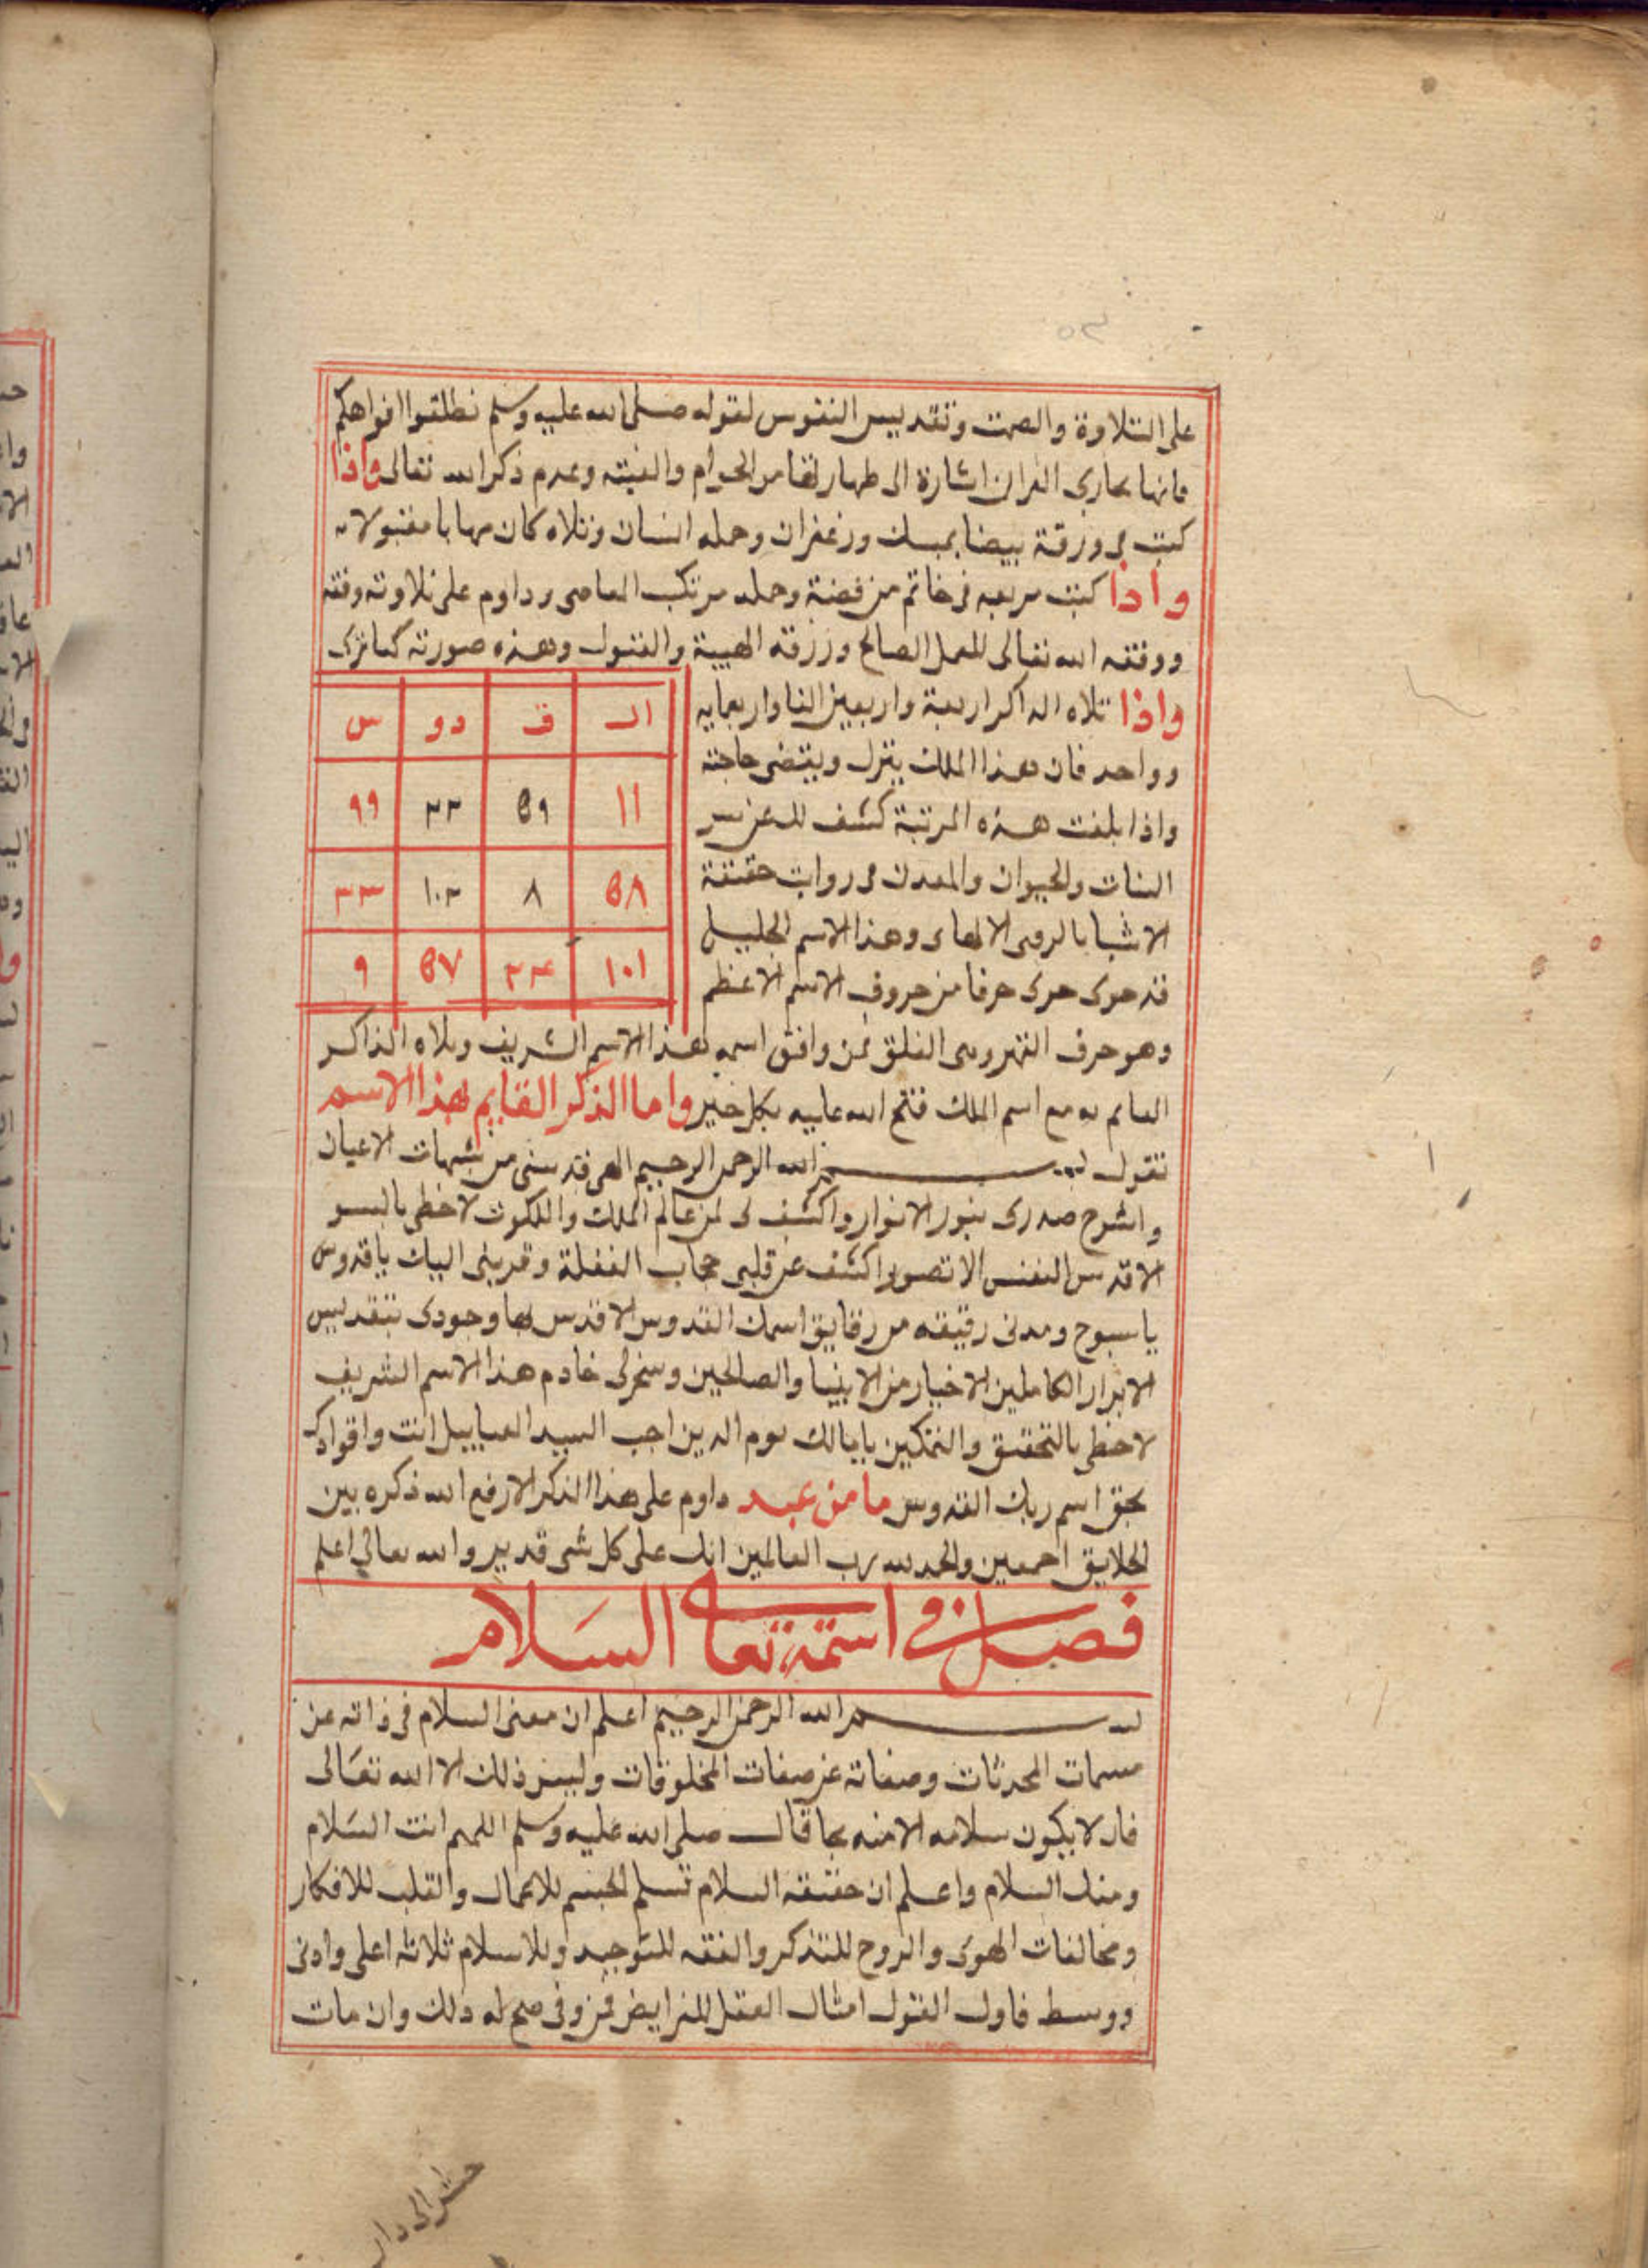 على التلاوة والصمت وتقديس النفوس لقوله صلى الله عليه وسلم افواهكم
فانها مجارى القران اشارة الى طهارتها من الحرام والغيبه وعدم ذكر الله تعالى واذا
كتب فى ورقة بيضا بمسك وزعفران وحمله انسان وتلاه كان مهابا مقبولا
واذا كتبت مربعه فى خاتم من فضة وحمله مرتكب المعاصى وداوم على تلاوته وفقه
ووفقه الله تعالى للعمل الصالح ورزقه الهيبة والقبول وهذه صورته كما ترى
واذا تلاه الذاكر اربعة واربعين الفا واربعمايه
وواحد فان هذا الملك ينزل ويقضى حاجته
واذا بلغت هذه المرتبة كشف لك عن سر
النبات والحيوان والمعدن حقيقة
الاشيا وهذا الاسم الجليل
قد حوى حوى حرفا من حروف الاسم الاعظم
الـ ق دو س
١١ ٥٩ ٣٣ ٩٩
٥٨ ٨ ١٠٢ ٣٣
١٠١ ٣٤ ٥٧ ٩
وهو حرف القهر فمن وافق اسمه هذا الاسم الشريف وتلاه الذاكر
مع اسم الملك فتح الله عليه بكل خير واما الذكر القايم بهذا الاسم
تقول بسم الله الرحمن الرحيم الهى قدسنى من شبهات الاعيان
واشرح صدرى بنور الانوار واكشف لى عن عالم الملك والملكوت لاحظى بالسر
الاقدس النفس واكشف عن قلبى حجاب الغفلة وقربنى اليك يا قدوس
يا سبوح ومدنى رقيقه من رقايق اسمك القدوس الاقدس بها وجودى بتقديس
الابرار الكاملين الاخيار من الانبيا والصالحين وسخر لى خادم هذا الاسم الشريف
لاحظى بالتحقيق والتمكين يا مالك يوم الدين اجب السيد انت
بحق اسم ربك القدوس ما من عبد داوم على هذا الذكر الا رفع الله ذكره بين
الخلايق اجمعين والحمد لله رب العالمين انك على كل شى قدير والله تعالى اعلم
فصل فى اسمه تعالى السلام
بسم الله الرحمن الرحيم اعلم ان معنى السلام فى ذاته عن
سمات المحدثات وصفاته عن صفات المخلوقات وليس ذلك الا الله تعالى
لا يكون سلامه الا منه قال صلى الله عليه وسلم اللهم انت السلام
ومنك السلام واعلم ان حقيقة السلام تسلم الجسم للاعمال والقلب للافكار
ومخالفات الهوى والروح للتذكر والفقه للتوحيد وللاسلام ثلاثه اعلى وادنى
ووسط فاول القول امثال العقل للفرايض فمن وفى صح له ذلك وان مات